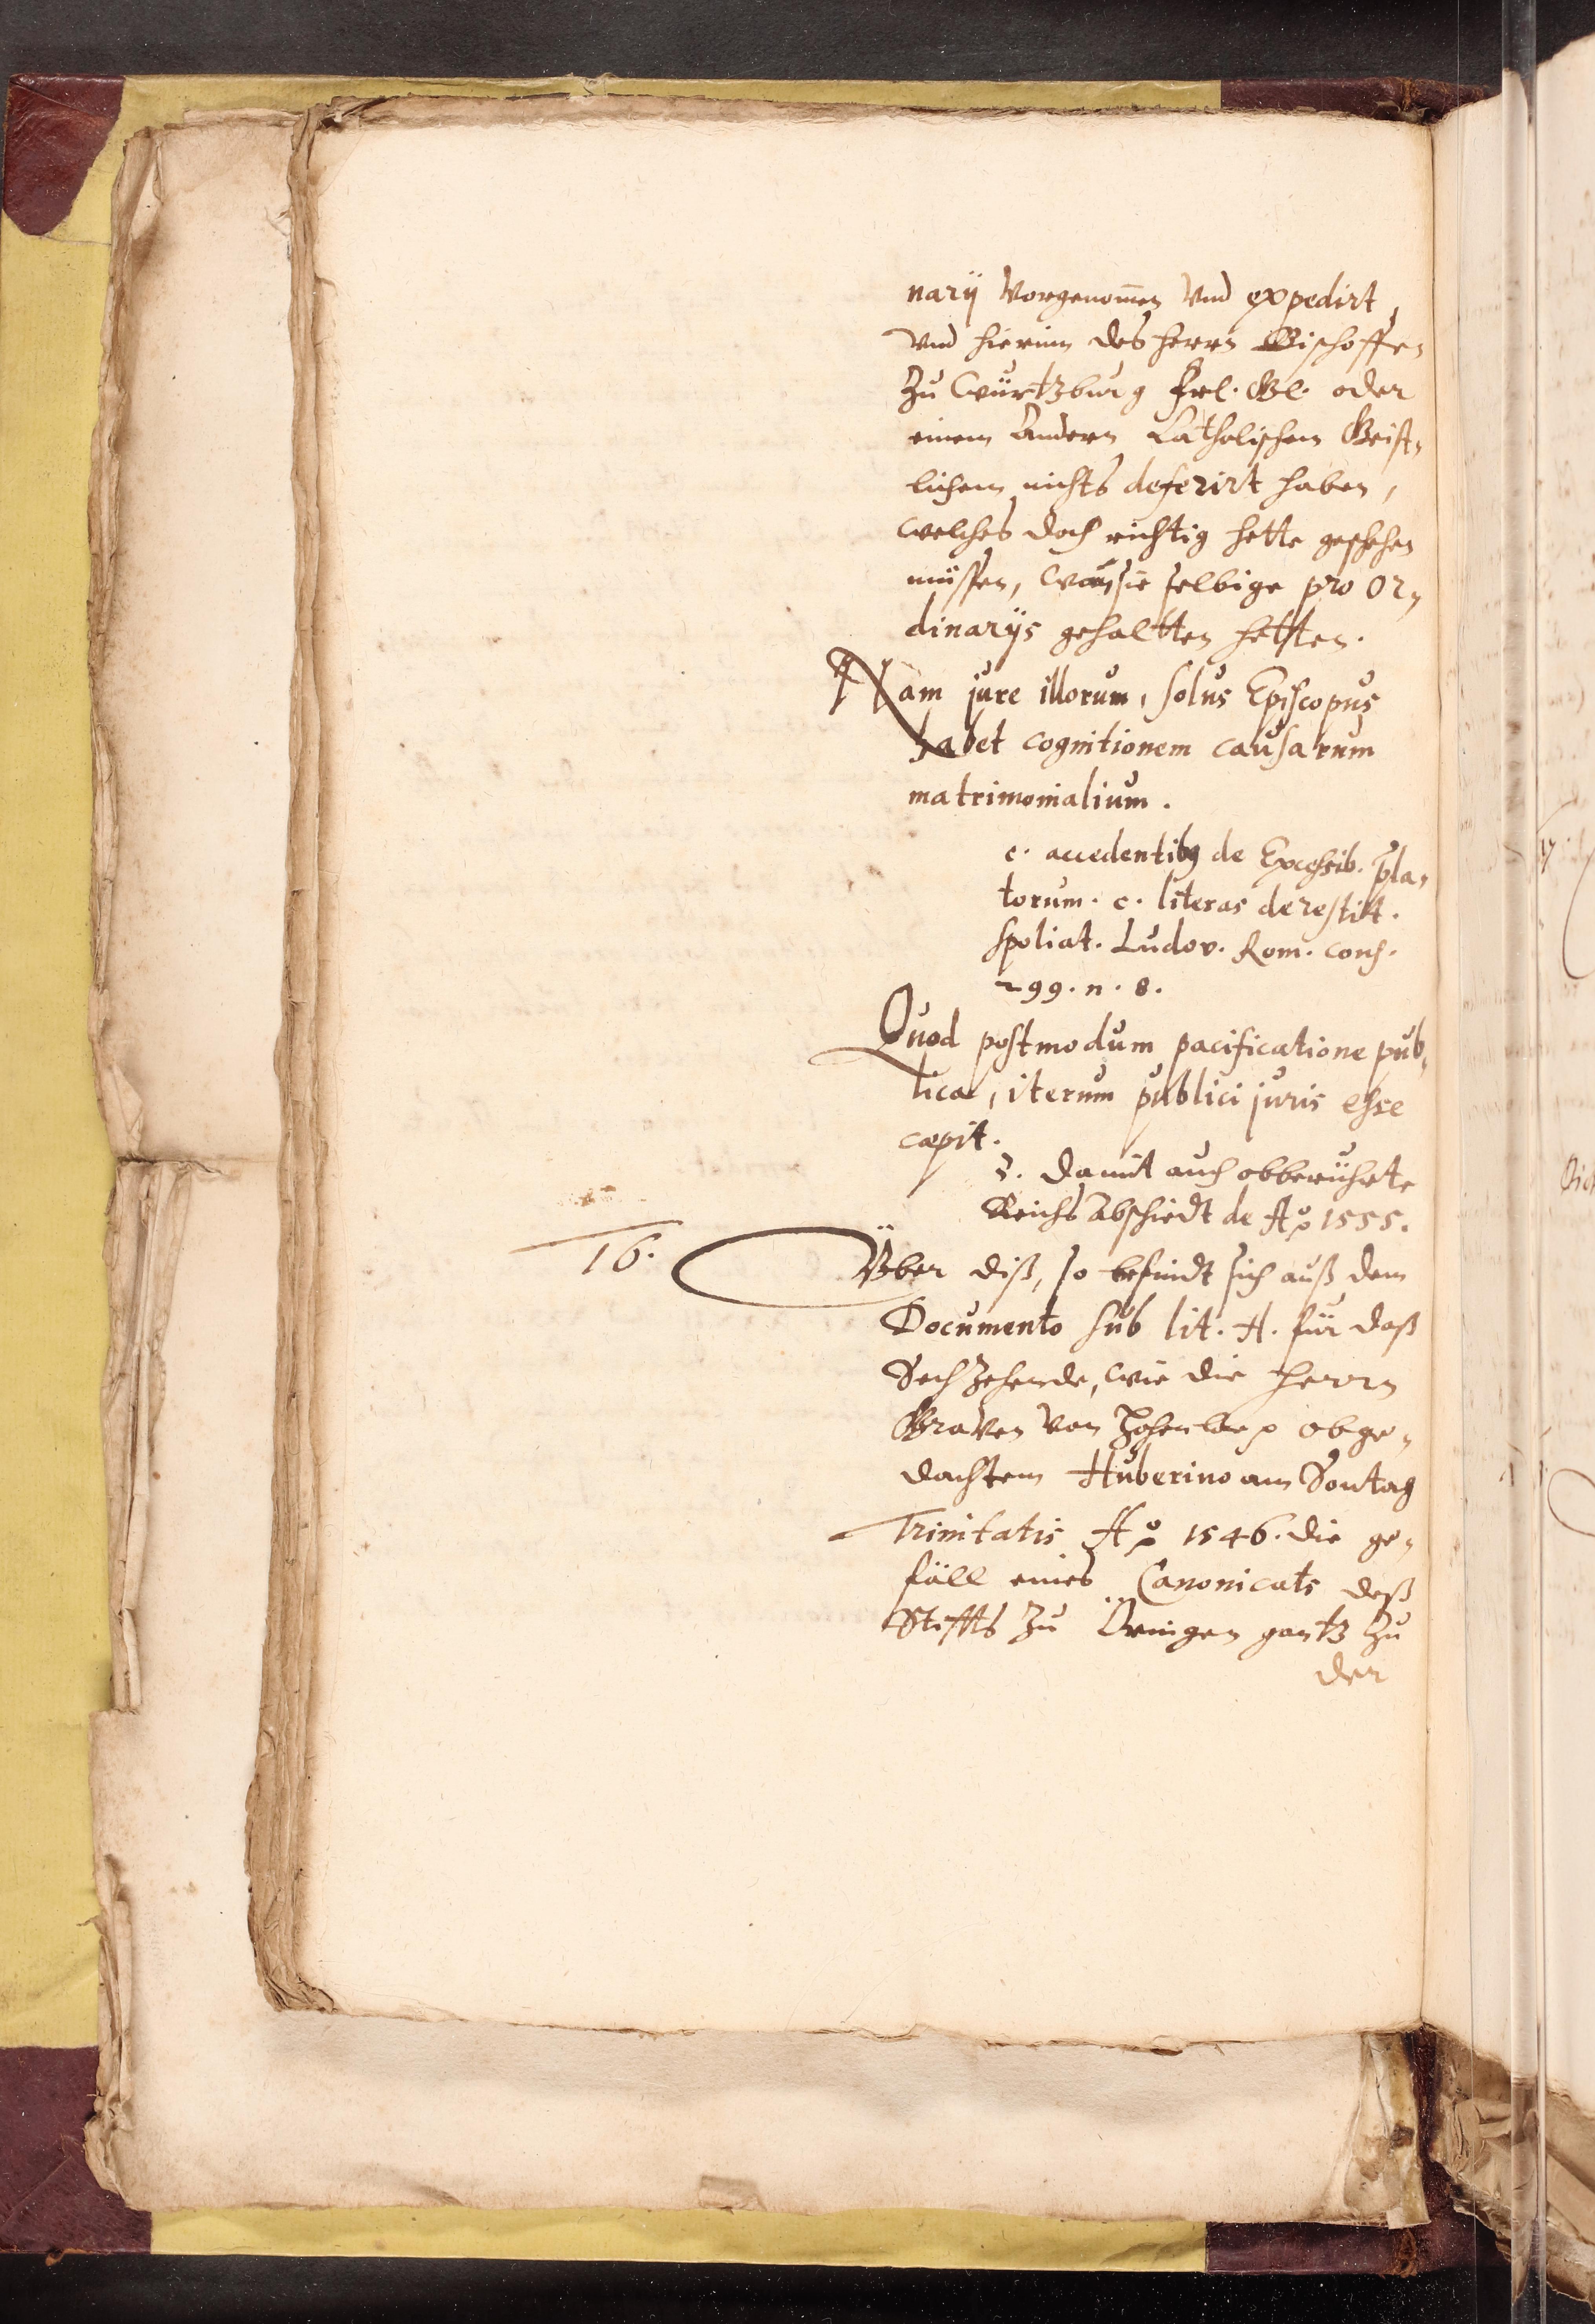 narÿ vorgenom̃en vnd expedirt,
vnd hierinn des herrn Bischoffen
Zu Würtzburg frl. Gl. oder
einem Andern Catholischen Geist„
lichem nichts deferirt haben,
welches doch richtig hette geschehen
müssen, wañ sie selbige pro Or„
dinarÿs gehaltten hetten.
Nam jure illorum, solus Episcopus
habet cognitionem causarum
matrimonialium.
c. accedentibꝰ de Excessib. p̃la„
torum. c. literas de restitt.
spoliat. Ludov. Rom. cons.
299. n. 8.
Quod postmodum pacificatione pub„
lica, iterum publici juris esse
cæpit.
v. damit auch obberührte
Reichs Abschiedt de Aõ 1555.
16.
Vber diß, so befindt sich auß dem
Documento sub lit. H. für daß
Sechzehende, wie die herrn
Graven von Hohenloe obge„
dachtem Huberino am Sontag
Trinitatis Aõ 1546. die ge„
fäll eines Canonicats deß
Stiffts zu Öringen gantz zu
der